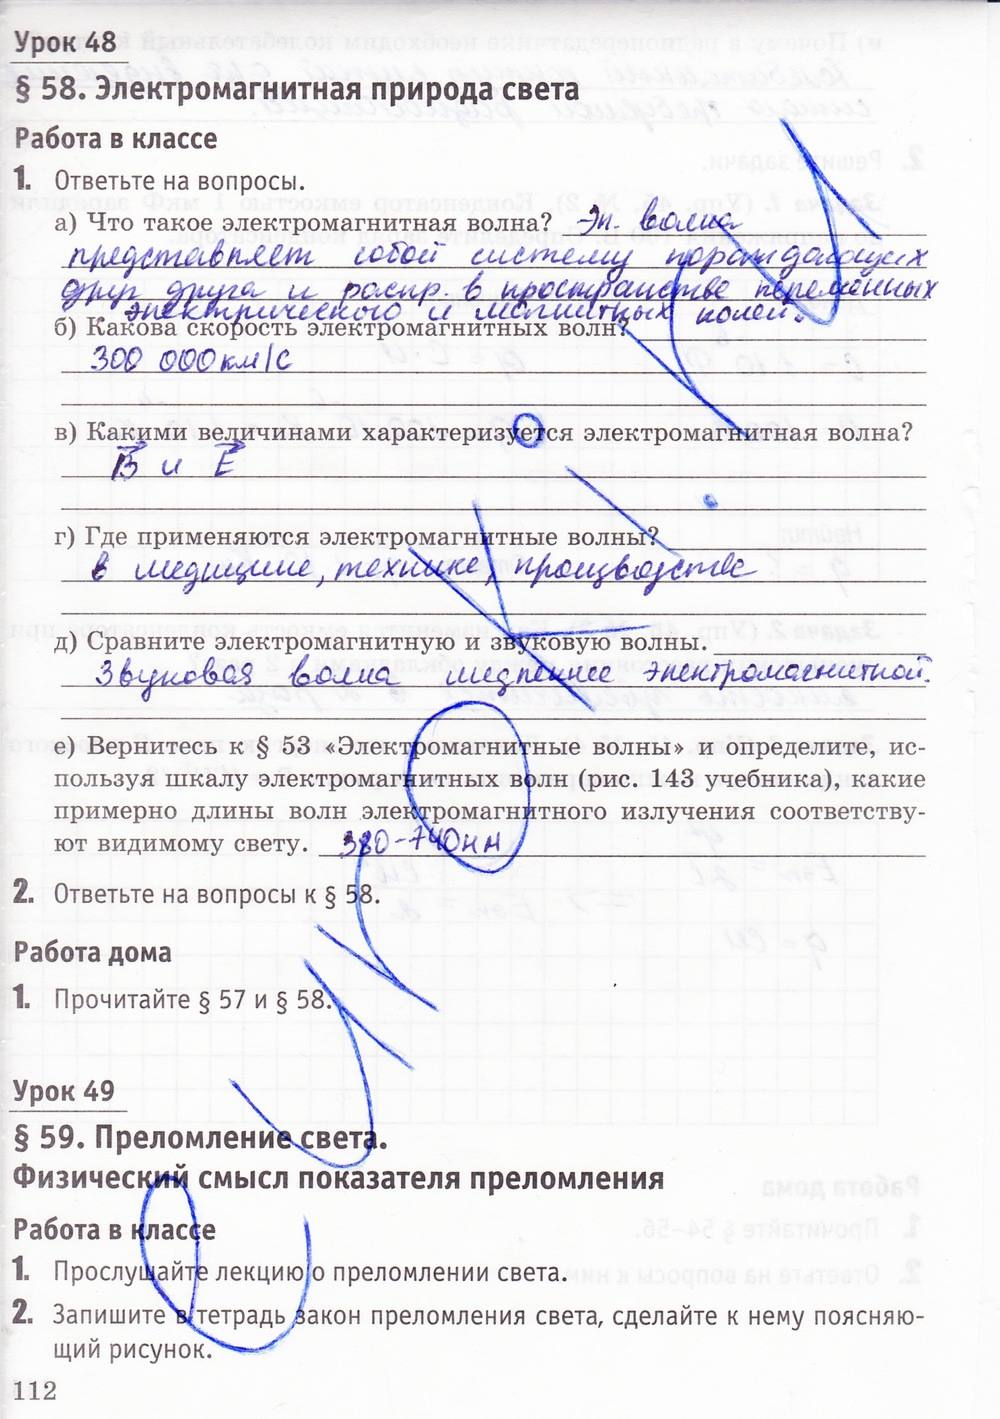 Урок 48
§ 58. Электромагнитная природа света
Работа в классе
1. Ответьте на вопросы.
а) Что такое электромагнитная волна? Эл. волна
представляет собой систему порождающих
друг друга и распр. в пространстве переменных
электрического и магнитных полей.
б) Какова скорость электромагнитных волн?
300 000 км/с
в) Какими величинами характеризуется электромагнитная волна?
B и E
г) Где применяются электромагнитные волны?
в медицине, технике, производстве
д) Сравните электромагнитную и звуковую волны.
Звуковая волна медленнее электромагнитной.
е) Вернитесь к § 53 «Электромагнитные волны» и определите, ис-
пользуя шкалу электромагнитных волн (рис. 143 учебника), какие
примерно длины волн электромагнитного излучения соответству-
ют видимому свету. 380-740нм
2. Ответьте на вопросы к § 58.
Работа дома
1. Прочитайте § 57 и § 58.
Урок 49
§ 59. Преломление света.
Физический смысл показателя преломления
Работа в классе
1. Прослушайте лекцию о преломлении света.
2. Запишите в тетрадь закон преломления света, сделайте к нему поясняю-
щий рисунок.
112